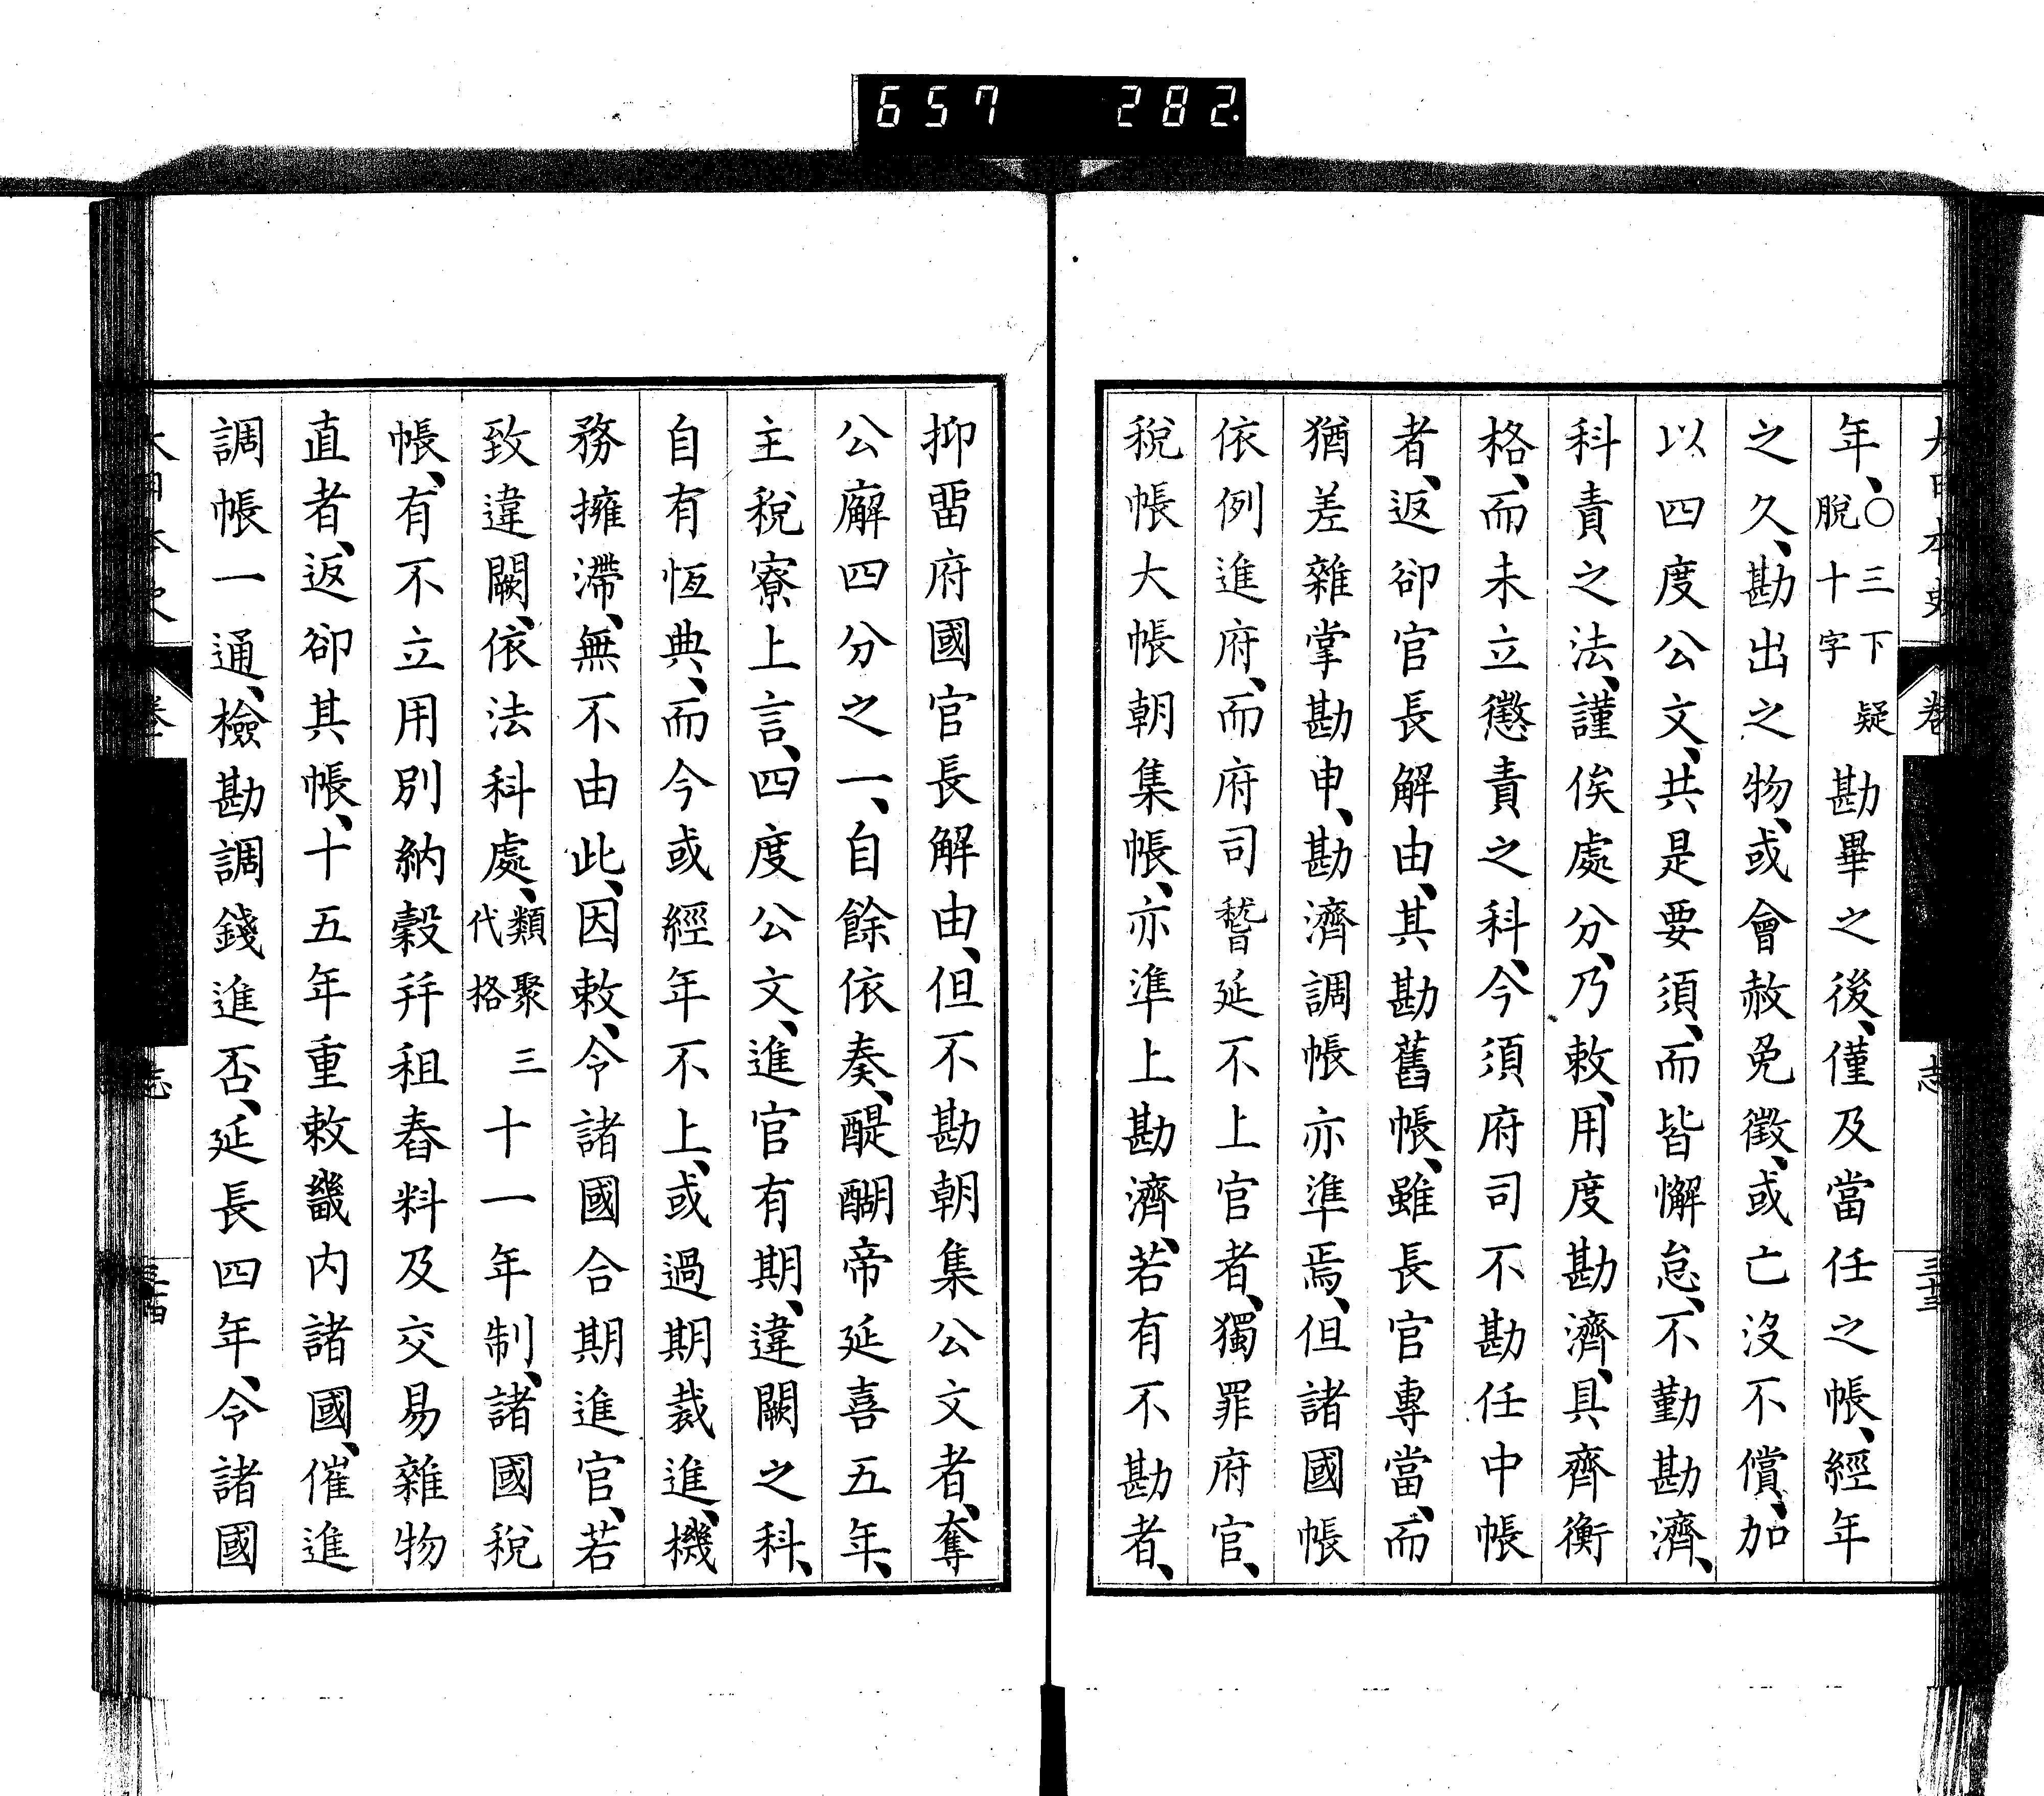 657 282.
大日本史 卷 志 三十三
年、〇三下疑脫十字 勘畢之後、僅及當任之帳、經年
之久、勘出之物、或會赦免徵、或亡沒不償、加
以四度公文、共是要須、而皆懈怠、不勤勘濟、
科責之法、謹俟處分、乃敕、用度勘濟、具齊衡
格、而未立懲責之科、今須府司不勘任中帳
者、返卻官長解由、其勘舊帳、雖長官專當、而
猶差雜掌勘申、勘濟調帳亦準焉、但諸國帳
依例進府、而府司稽延不上官者、獨罪府官、
稅帳大帳朝集帳、亦準上勘濟、若有不勘者、
抑畱府國官長解由、但不勘朝集公文者、奪
公廨四分之一、自餘依奏、醍醐帝延喜五年、
主稅寮上言、四度公文、進官有期、違闕之科、
自有恆典、而今或經年不上、或過期裁進、機
務擁滯、無不由此、因敕、令諸國合期進官、若
致違闕、依法科處、類聚三代格 十一年制、諸國稅
帳、有不立用別納穀幷租舂料及交易雜物
直者、返卻其帳、十五年重敕畿内諸國、催進
調帳一通、檢勘調錢進否、延長四年、令諸國
大日本史 卷 志 三十四